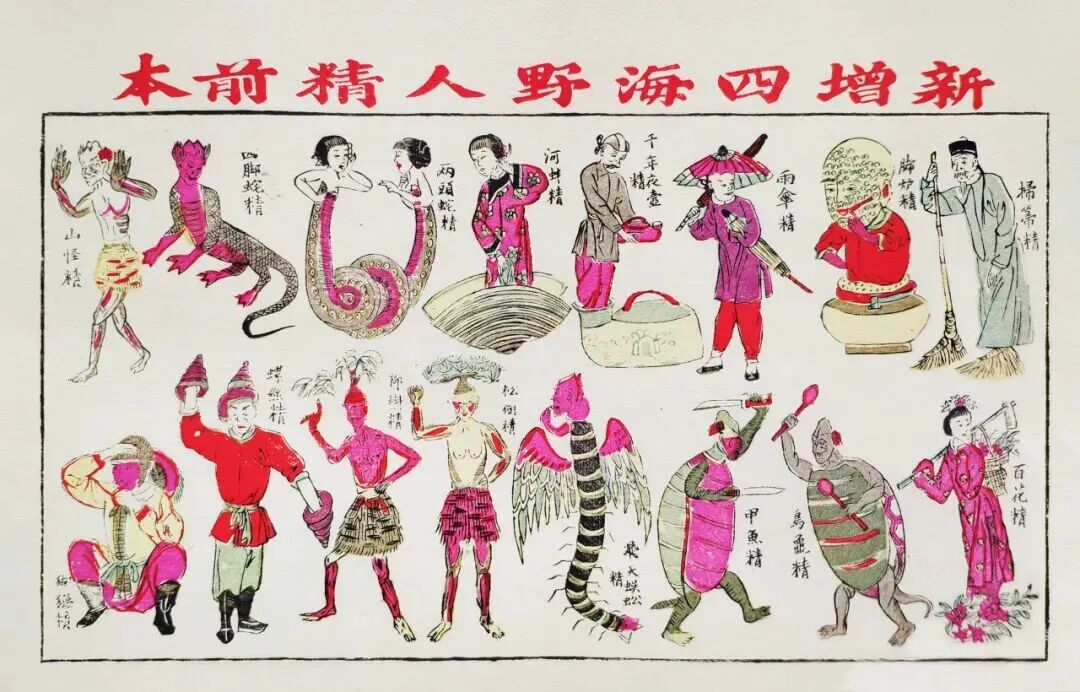 新增四海野人精前本
掃箒精
脚炉精
雨傘精
千年夜壺
精
河蚌精
兩頭蛇精
四脚蛇精
山怪精
百花精
烏龜精
甲魚精
飛天蜈蚣
精
松樹精
柳樹精
螺絲精